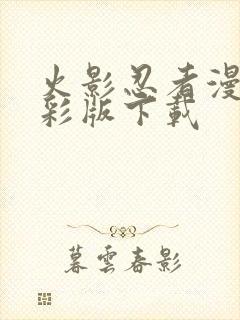 火影忍者漫
彩版下載
暮雲春影